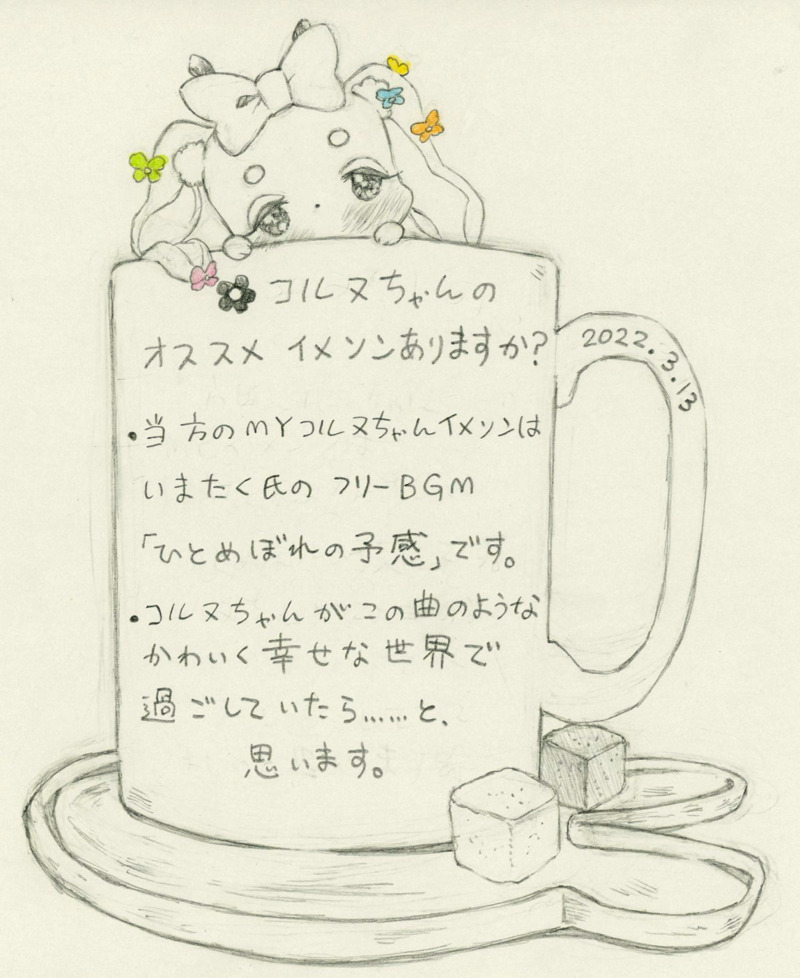 コルヌちゃんの
オススメ イメソンありますか?
2022.3.13
・当方のMYコルヌちゃんイメソンは
いまたく氏の フリーBGM
「ひとめぼれの予感」です。
・コルヌちゃんがこの曲のような
かわいく幸せな世界で
過ごしていたら……と、
思います。